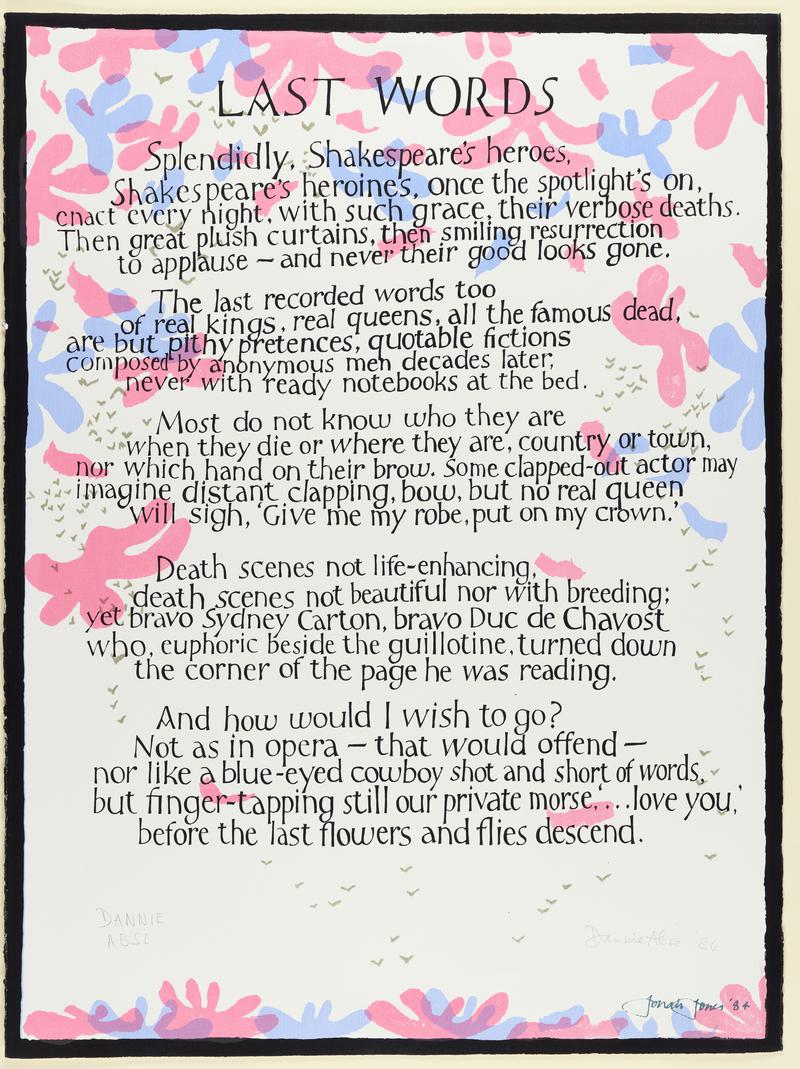 LAST WORDS
Splendidly, Shakespeare's heroes,
Shakespeare's heroines, once the spotlight's on,
enact every night, with such grace, their verbose deaths.
Then great plush curtains, then smiling resurrection
to applause – and never their good looks gone.
The last recorded words too
of real kings, real queens, all the famous dead,
are but pithy pretences, quotable fictions
composed by anonymous men decades later,
never with ready notebooks at the bed.
Most do not know who they are
when they die or where they are, country or town,
nor which hand on their brow. Some clapped-out actor may
imagine distant clapping, bow, but no real queen
will sigh, 'Give me my robe, put on my crown.'
Death scenes not life-enhancing,
death scenes not beautiful nor with breeding;
yet bravo Sydney Carton, bravo Duc de Chavost
who, euphoric beside the guillotine, turned down
the corner of the page he was reading.
And how would I wish to go?
Not as in opera – that would offend –
nor like a blue-eyed cowboy shot and short of words,
but finger-tapping still our private morse, '...love you,'
before the last flowers and flies descend.
DANNIE
ABSE
Dannie Abse '84
Jonah Jones '84